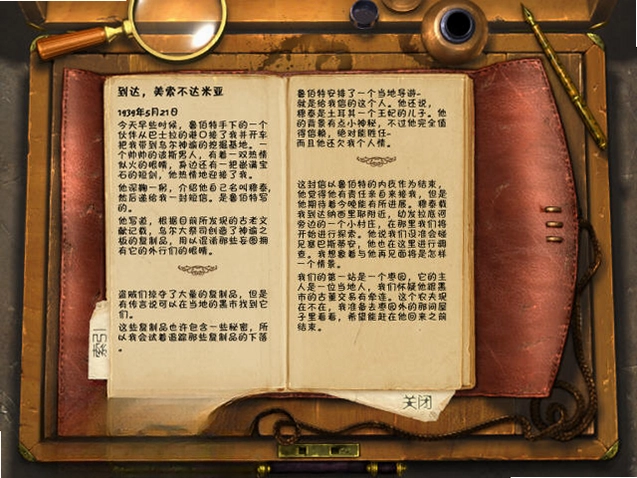 到达，美索不达米亚
1939年5月21日
今天早些时候，鲁伯特手下的一个
伙伴从巴士拉的港口接了我并开车
把我带到乌尔神谕的挖掘基地。一
个帅帅的波斯男人，有着一双热情
似火的眼睛，身边还有一把嵌满宝
石的短剑，他热情地迎接了我。
他深鞠一躬，介绍他自己名叫穆泰，
然后递给我一封短信，是鲁伯特写
的。
他写道，根据目前所发现的古老文
献记载，乌尔大祭司创造了神谕之
板的复制品，用以误诱那些妄图拥
有它的外行们的眼睛。
盗贼们掠夺了大量的复制品，但是
有传言说可以在当地的黑市找到它
们。
这些复制品也许包含一些秘密，所
以我会试着追踪那些复制品的下落
。
鲁伯特安排了一个当地导游-
就是给我信的这个人。他还说，
穆泰是土耳其一个王妃的儿子。他
的背景有点小神秘，不过他完全值
得信赖，绝对能胜任-
而且他还欠我个人情。
这封信以鲁伯特的内疚作为结束，
他觉得他有责任亲自来接我，但是
他期待着今晚能有所进展。穆泰载
我到达纳西里耶附近，幼发拉底河
旁边的一个小村庄，在那里我们将
开始进行探索。他说我们没准会碰
见塞巴斯蒂安，他也在这里进行调
查。我想象着与他再见面将是怎样
一个情景。
我们的第一站是一个枣园，它的主
人是一位当地人，我们怀疑他跟黑
市的古董交易有牵连。这个农夫现
在不在，我准备去枣园外的那间屋
子里看看，希望能赶在他回来之前
结束。
索引
关闭